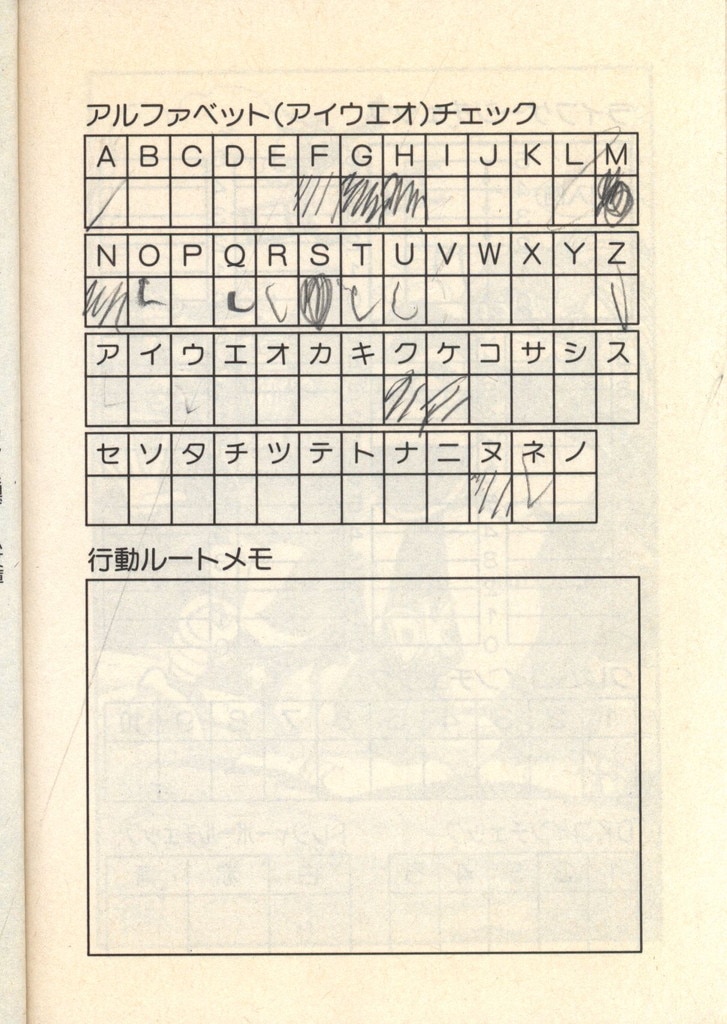 アルファベット(アイウエオ)チェック
A B C D E F G H I J K L M
N O P Q R S T U V W X Y Z
ア イ ウ エ オ カ キ ク ケ コ サ シ ス
セ ソ タ チ ツ テ ト ナ ニ ヌ ネ ノ
行動ルートメモ